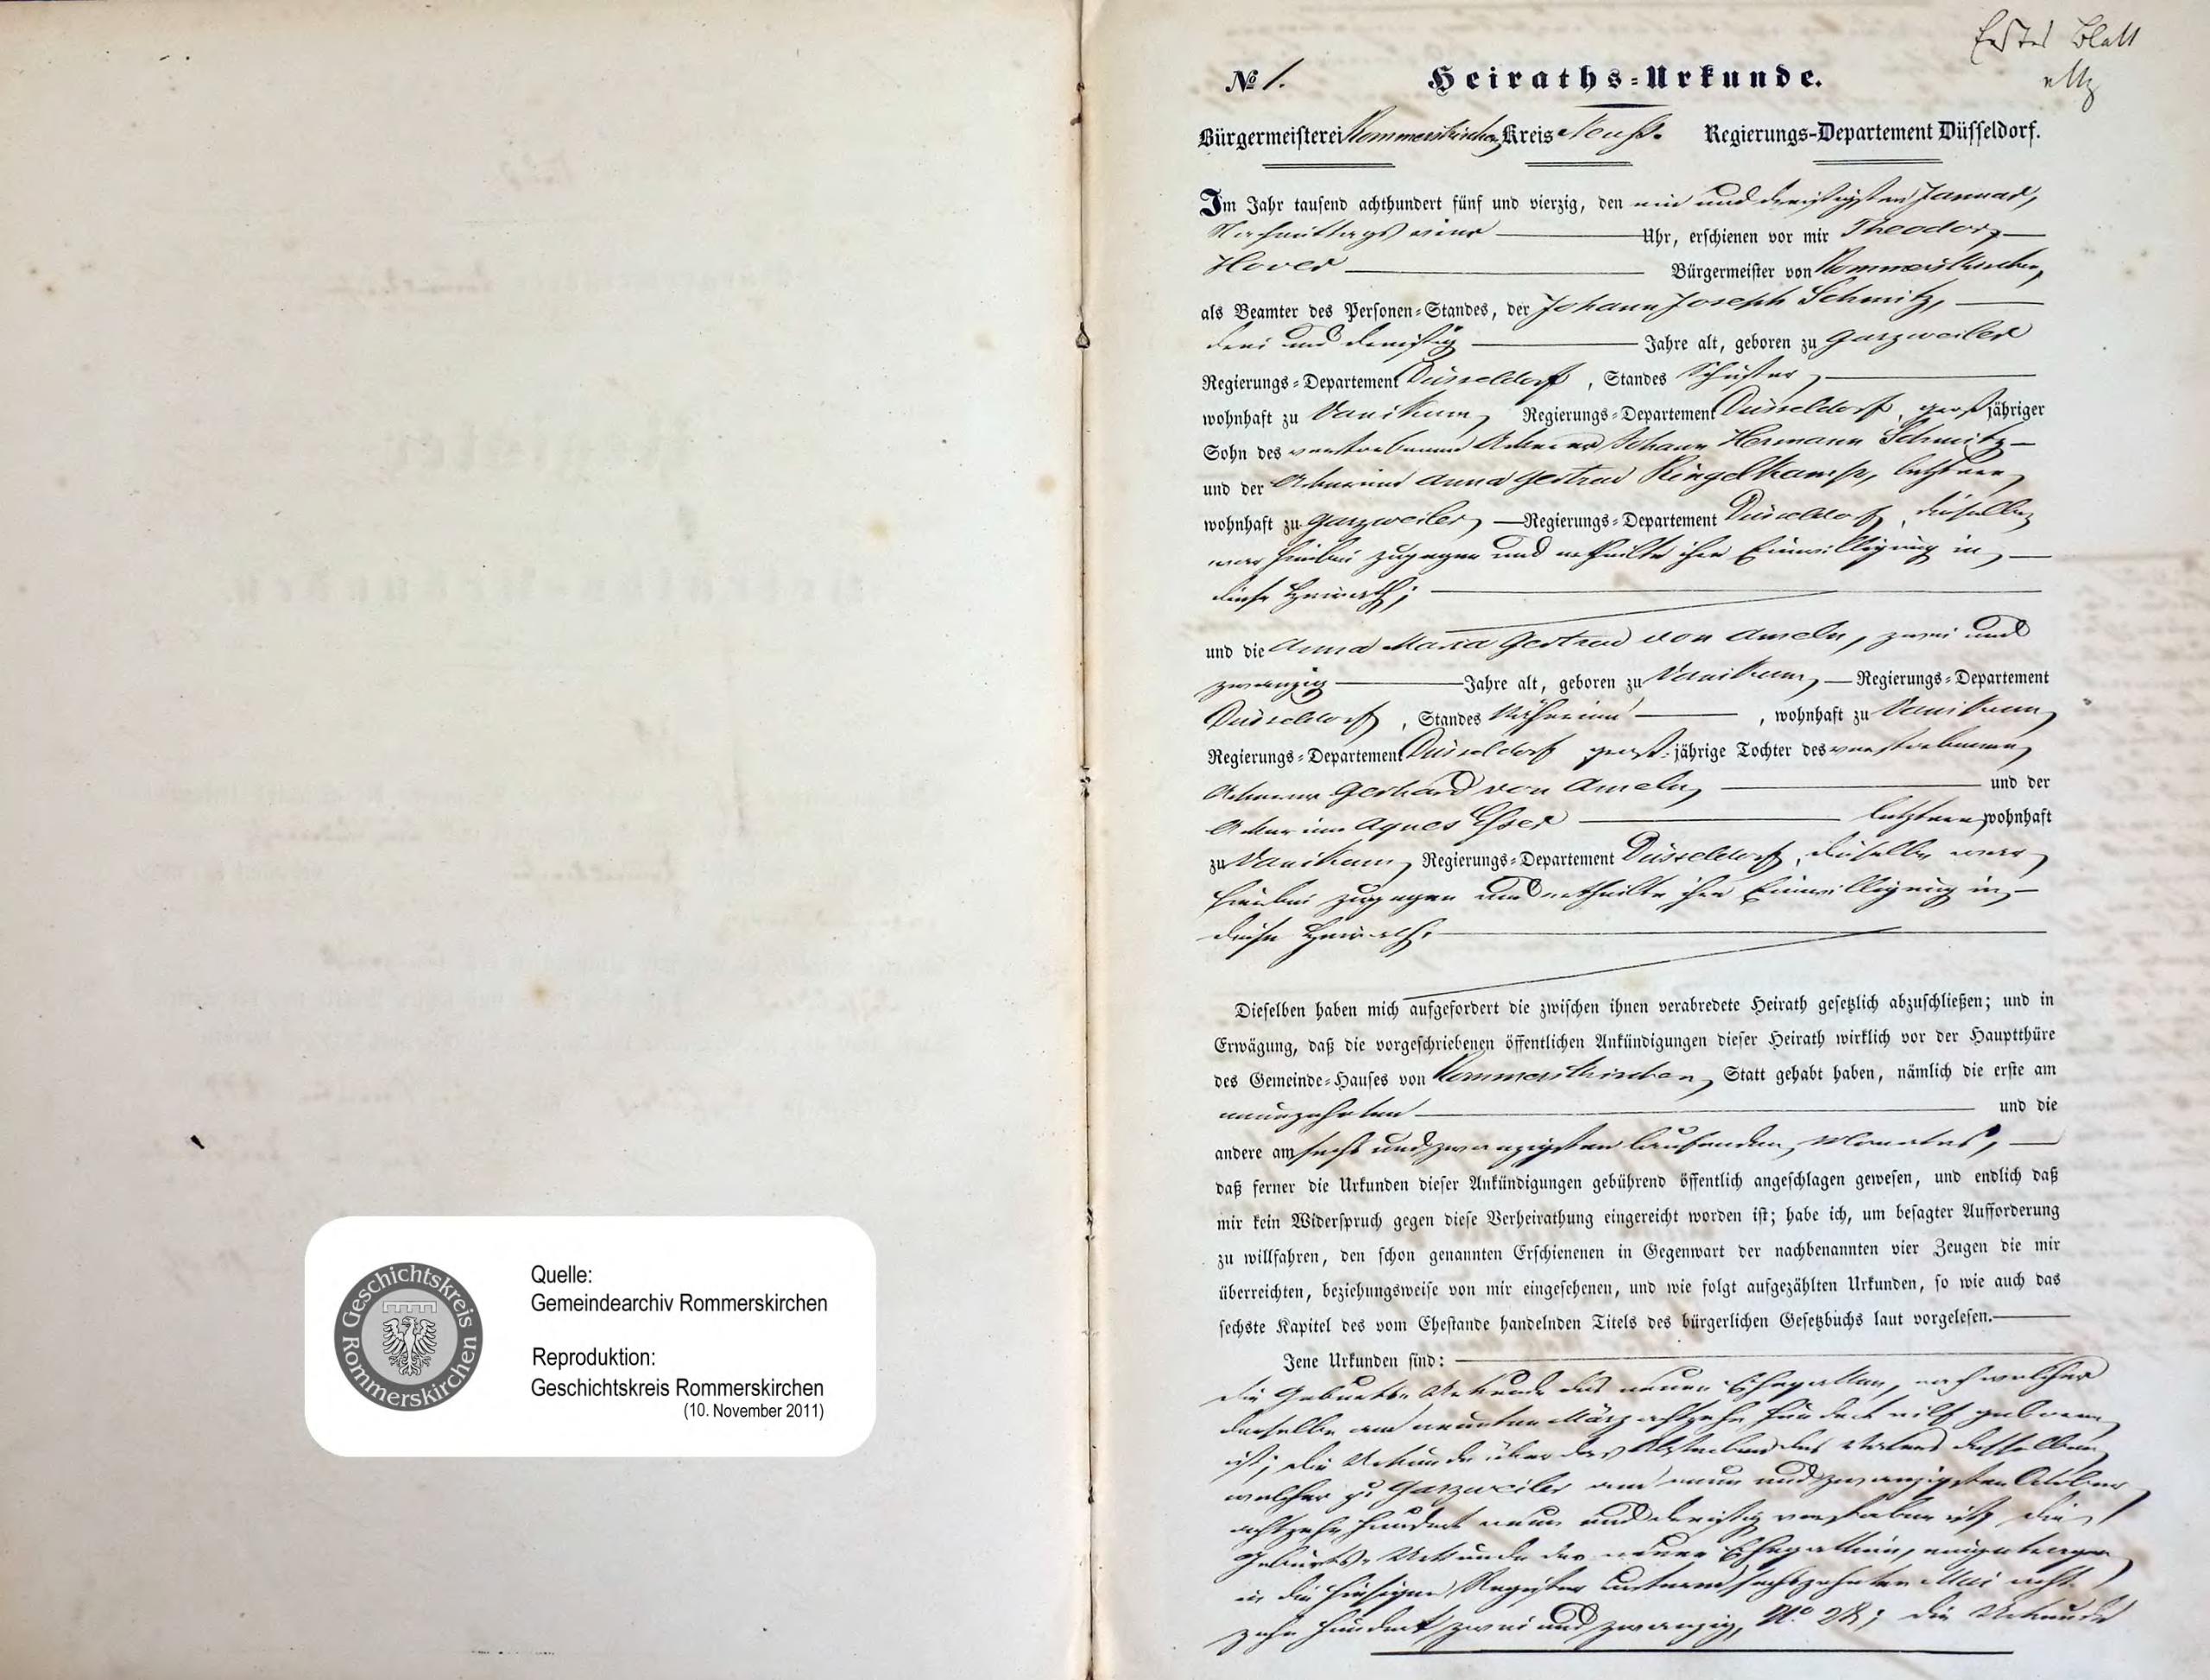 Erstes Blatt
№ 1.
Heiraths-Urkunde.
Bürgermeisterei Rommerskirchen Kreis Neuß. Regierungs-Departement Düsseldorf.
Im Jahr tausend achthundert fünf und vierzig, den ein und dreißigsten Januar,
Nachmittags eine Uhr, erschienen vor mir Theodor
Hover Bürgermeister von Rommerskirchen,
als Beamter des Personen-Standes, der Johann Joseph Schmitz,
drei und dreißig Jahre alt, geboren zu Garzweiler
Regierungs-Departement Düsseldorf, Standes Schuster,
wohnhaft zu Vanikum, Regierungs-Departement Düsseldorf, großjähriger
Sohn des verstorbenen Ackerer Johann Hermann Schmitz
und der Ackerinn Anna Gertrud Ringelkamp, letztere
wohnhaft zu Garzweiler, Regierungs-Departement Düsseldorf, dieselbe
war hierbei zugegen und ertheilte ihre Einwilligung in
diese Heirath;
und die Anna Maria Gertrud von Ameln, zwei und
zwanzig Jahre alt, geboren zu Vanikum, Regierungs-Departement
Düsseldorf, Standes Näherinn, wohnhaft zu Vanikum
Regierungs-Departement Düsseldorf groß-jährige Tochter des verstorbenen
Ackerer Gerhard von Ameln, und der
Ackerinn Agnes Esser letztere wohnhaft
zu Vanikum, Regierungs-Departement Düsseldorf, dieselbe war
hierbei zugegen und ertheilte ihre Einwilligung in
diese Heirath.
Dieselben haben mich aufgefordert die zwischen ihnen verabredete Heirath gesetzlich abzuschließen; und in
Erwägung, daß die vorgeschriebenen öffentlichen Ankündigungen dieser Heirath wirklich vor der Hauptthüre
des Gemeinde-Hauses von Rommerskirchen, Statt gehabt haben, nämlich die erste am
neunzehnten und die
andere am sechs und zwanzigsten laufenden Monates,
daß ferner die Urkunden dieser Ankündigungen gebührend öffentlich angeschlagen gewesen, und endlich daß
mir kein Widerspruch gegen diese Verheirathung eingereicht worden ist; habe ich, um besagter Aufforderung
zu willfahren, den schon genannten Erschienenen in Gegenwart der nachbenannten vier Zeugen die mir
überreichten, beziehungsweise von mir eingesehenen, und wie folgt aufgezählten Urkunden, so wie auch das
sechste Kapitel des vom Ehestande handelnden Titels des bürgerlichen Gesetzbuchs laut vorgelesen.
Jene Urkunden sind:
die Geburts-Urkunde des neuen Ehegatten, nach welcher
derselbe am neunten März achtzehn hundert eilf geboren
ist; die Urkunde über das Absterben des Vaters desselben
welcher zu Garzweiler am neun und zwanzigsten October
achtzehn hundert neun und dreißig verstorben ist; die
Geburts-Urkunde der neuen Ehegattinn, eingetragen
in die hiesigen Register unterm sechszehnten Mai acht
zehn hundert zwei und zwanzig, No 28; die Urkunde
Geschichtskreis Rommerskirchen
Quelle:
Gemeindearchiv Rommerskirchen
Reproduktion:
Geschichtskreis Rommerskirchen
(10. November 2011)